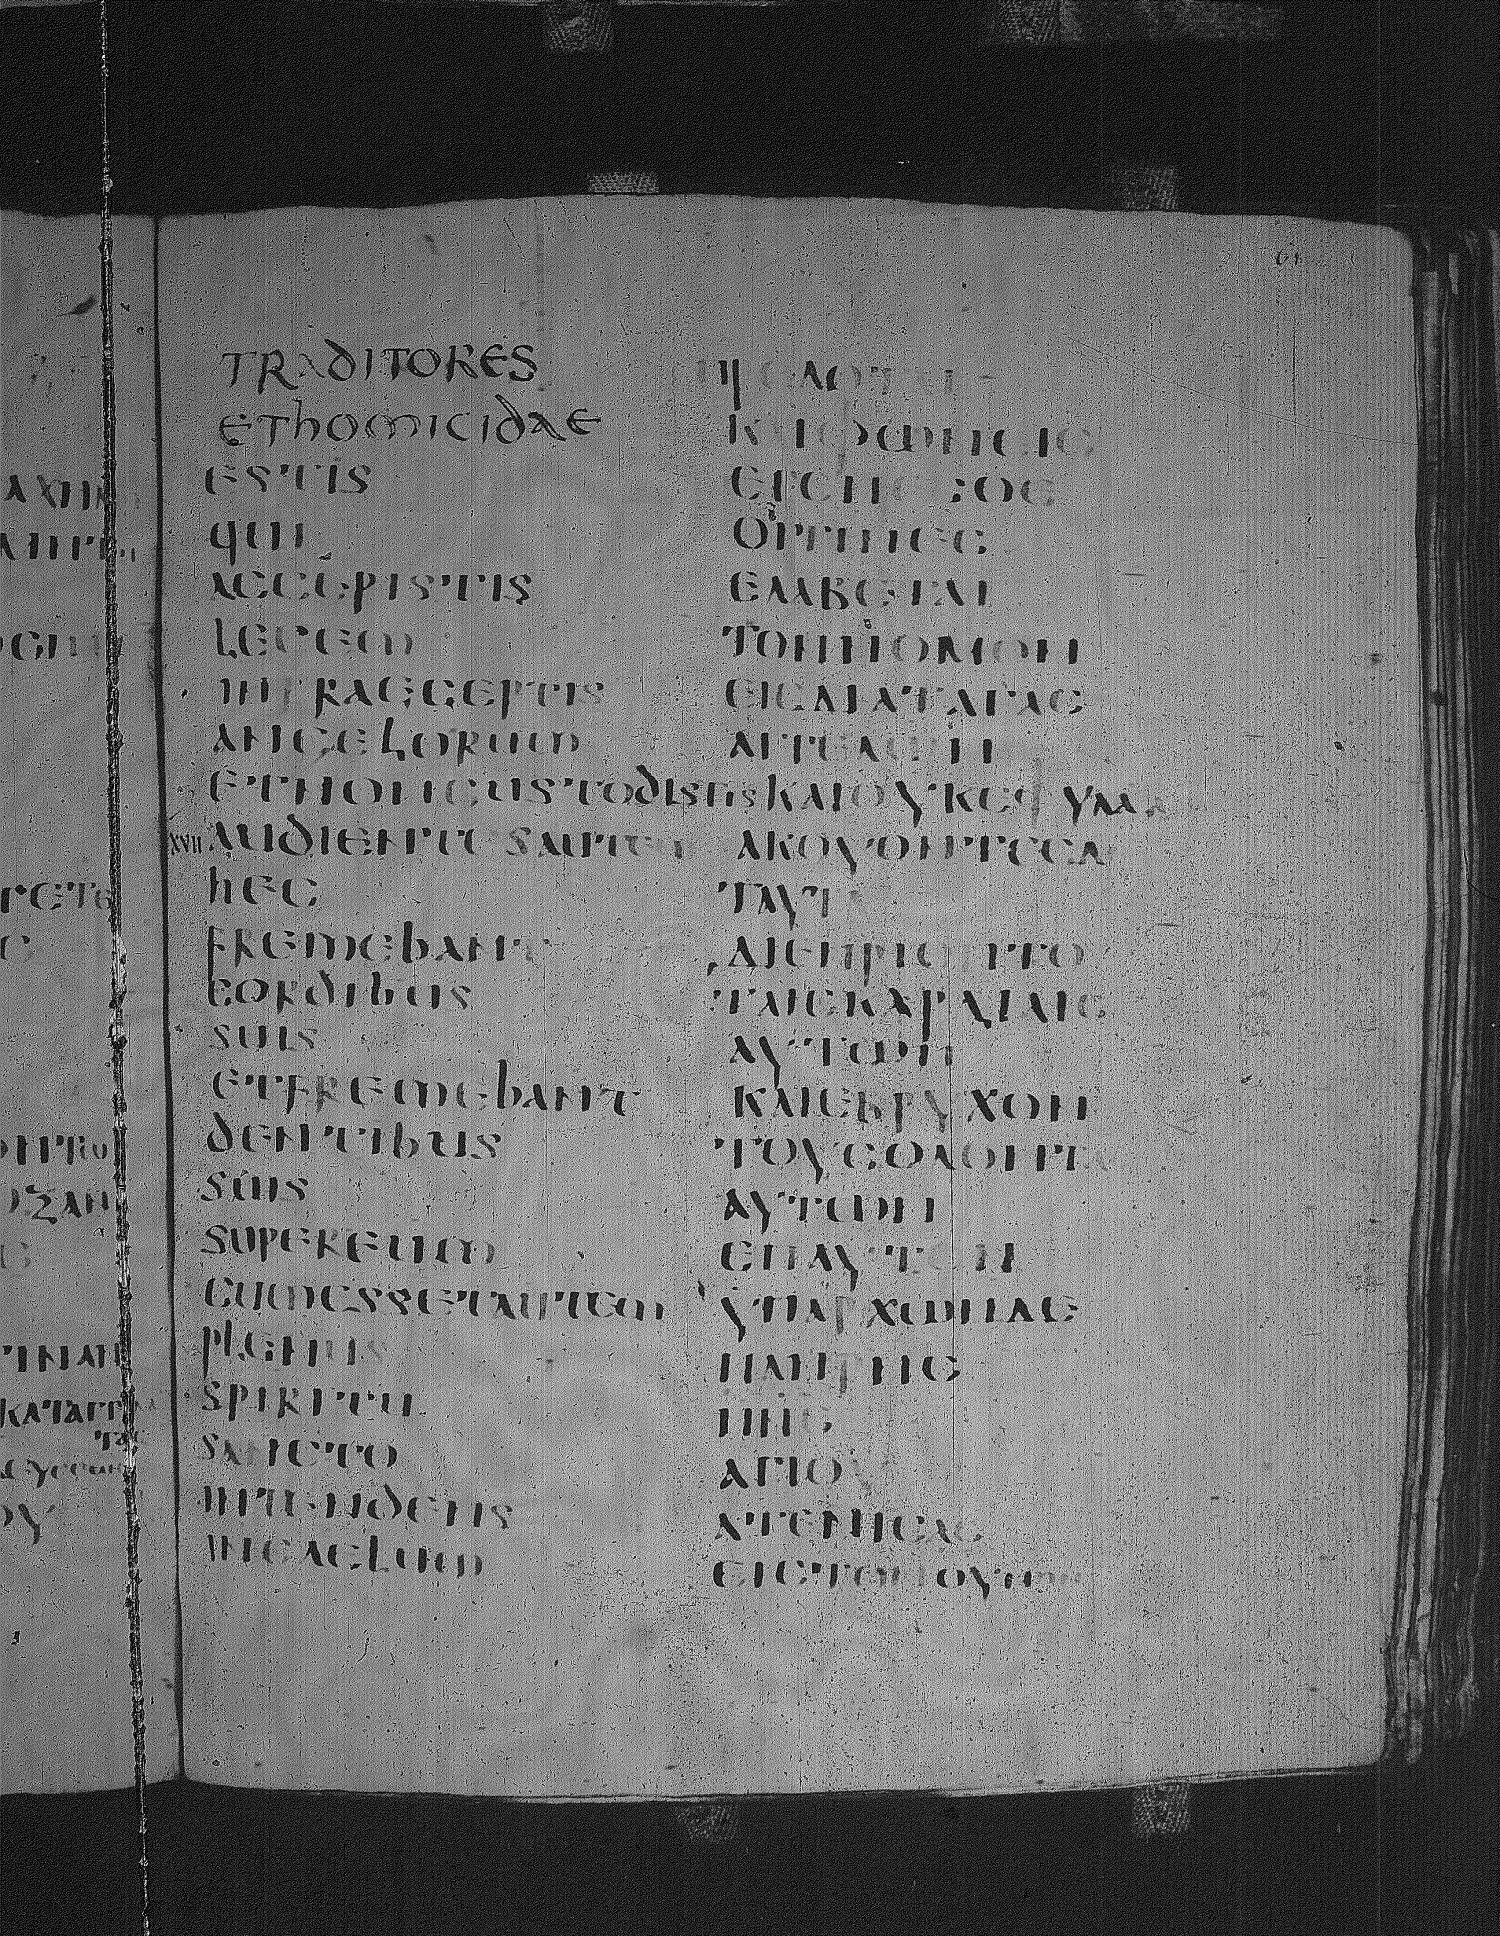 TRADITORES
ETHOMICIDAE
ESTIS
QUI
ACCEPISTIS
LEGEM
IN PRAECEPTIS
ANGELORUM
ETNONCUSTODISTIS
XVII AUDIENTES AUTEM
HEC
FREMEBANT
CORDIBUS
SUIS
ETFREMEBANT
DENTIBUS
SUIS
SUPEREUM
CUMESSETAUTEM
PLENUS
SPIRITU
SANCTO
INTENDENS
INCAELUM
ΚΑΙΦΩΝΕΙϹ
ΕΓΕΝΗϹΘΕ
ΟΙΤΙΝΕϹ
ΕΛΑΒΕΤΑΙ
ΤΟΝΝΟΜΟΝ
ΕΙϹΔΙΑΤΑΓΑϹ
ΑΓΓΕΛΩΝ
ΚΑΙΟΥΚΕΦΥΛΑ
ΑΚΟΥΟΝΤΕϹΔΕ
ΤΑΥΤΑ
ΔΙΕΠΡΙΟΝΤΟ
ΤΑΙϹΚΑΡΔΙΑΙϹ
ΑΥΤΩΝ
ΚΑΙΕΒΡΥΧΟΝ
ΤΟΥϹΟΔΟΝΤΑϹ
ΑΥΤΩΝ
ΕΠΑΥΤΟΝ
ΥΠΑΡΧΩΝΔΕ
ΠΛΗΡΗϹ
ΠΝϹ
ΑΓΙΟΥ
ΑΤΕΝΗϹΑϹ
ΕΙϹΤΟΝΟΥΝΟΝ